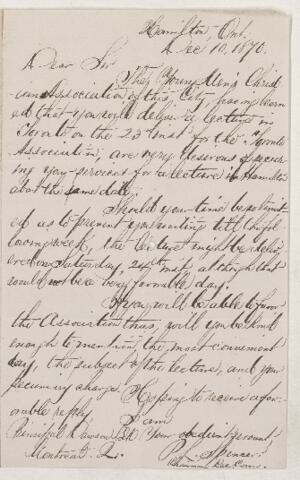 Hamilton, Ont.
Dec 10, 1870.
Dear Sir
The Young Men's Christ-
ian Association of this City, having learn-
ed that you will deliver a lecture in
Toronto on the 23rd inst. for the Toronto
Association, are very desirous of secur-
ing your services for a lecture in Hamilton
about the same date.
Should your time be so limit-
ed as to prevent your waiting till the fol-
lowing week, the lecture might be deliv-
ered on Saturday, 24th inst., although that
would not be a very favorable day.
If you will be able to favor
the Association thus, will you be kind
enough to mention the most convenient
day, the subject of the lecture, and your
pecuniary charge. Hoping to receive a fav-
orable reply
I am
Principal Dawson Your obedient servant
Montreal. Q. Spencer
Chairman Lec. Com.